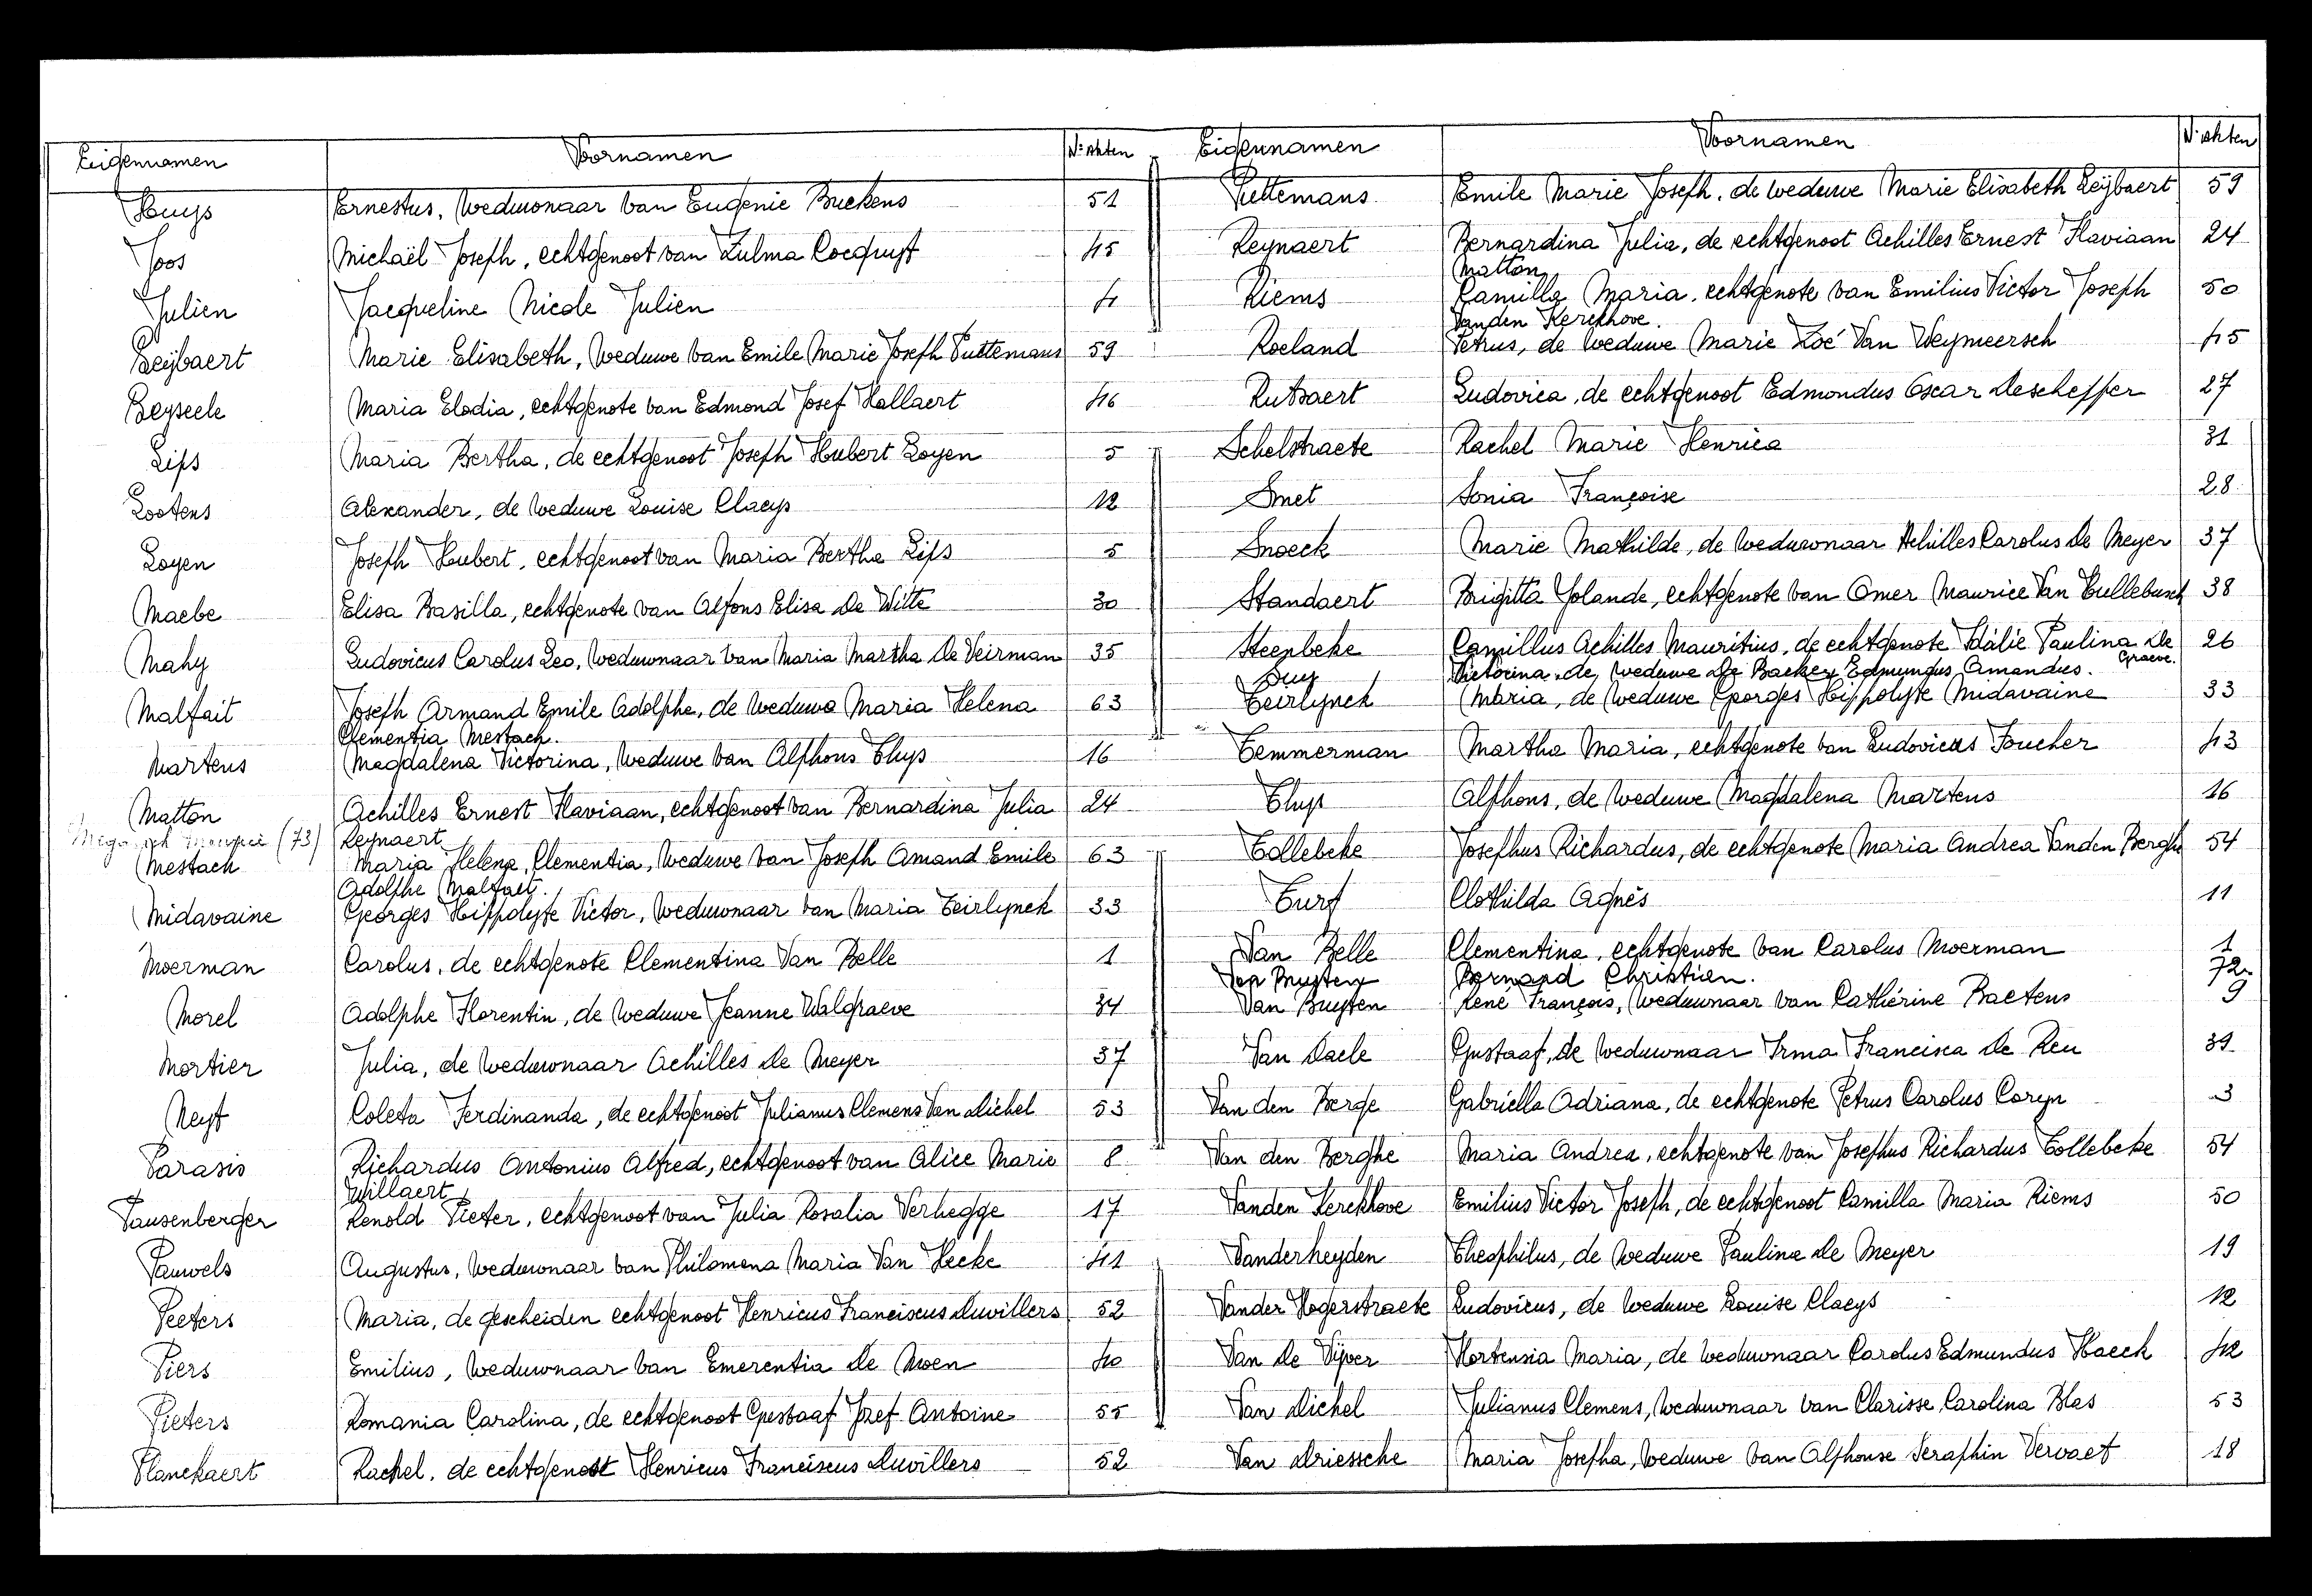 Eigennamen Voornamen Nr akten
Huys Ernestus, Weduwnaar van Eugenie Buckens 51
Joos Michaël Joseph, echtgenoot van Zulma Cocquyt 45
Julien Jacqueline Nicole Julien 4
Leijbaert Marie Elisabeth, Weduwe van Emile Marie Joseph Puttemans 59
Leyseele Maria Elodia, echtgenote van Edmond Josef Hallaert 46
Lips Maria Bertha, de echtgenoot Joseph Hubert Loyen 5
Lootens Alexander, de Weduwe Louise Claeys 12
Loyen Joseph Hubert, echtgenoot van Maria Bertha Lips 5
Maebe Elisa Basilla, echtgenote van Alfons Elisa De Witte 30
Mahy Ludovicus Carolus Leo, Weduwnaar van Maria Martha De Veirman 35
Malfait Joseph Armand Emile Adolphe, de Weduwe Maria Helena 63
Clementia Mestach.
Martens Magdalena Victorina, Weduwe van Alphons Thys 16
Matton Achilles Ernest Flaviaan, echtgenoot van Bernardina Julia 24
(73) Reynaert
Mestach Maria Helena Clementia, Weduwe van Joseph Amand Emile 63
Adolphe Malfait.
Midavaine Georges Hippolyte Victor, Weduwnaar van Maria Teirlynck 33
Moerman Carolus, de echtgenote Clementina Van Belle 1
Morel Adolphe Florentin, de Weduwe Jeanne Walgraeve 34
Mortier Julia, de Weduwnaar Achilles De Meyer 37
Neyt Coleta Ferdinanda, de echtgenoot Julianus Clemens Van Dichel 53
Parasis Richardus Antonius Alfred, echtgenoot van Alice Marie 8
Willaert
Pausenberger Renold Pieter, echtgenoot van Julia Rosalia Verhegge 17
Pauwels Augustus, Weduwnaar van Philomena Maria Van Hecke 41
Peeters Maria, de gescheiden echtgenoot Henricus Franciscus Duvillers 52
Piers Emilius, Weduwnaar van Emerentia De Moen 40
Pieters Romania Carolina, de echtgenoot Gustaaf Jozef Antoine 55
Planckaert Rachel, de echtgenoot Henricus Franciscus Duvillers 52
Eigennamen Voornamen Nr akten
Puttemans Emile Marie Joseph, de weduwe Marie Elisabeth Leijbaert 59
Reynaert Bernardina Julia, de echtgenoot Achilles Ernest Flaviaan 24
Matton
Riems Camilla Maria, echtgenote van Emilius Victor Joseph 50
Vanden Kerckhove.
Roeland Petrus, de Weduwe Marie Zoé Van Weymeersch 45
Rutsaert Ludovica, de echtgenoot Edmondus Oscar Descheffer 27
Schelstraete Rachel Marie Henrica 31
Smet Sonia Françoise 28
Snoeck Marie Mathilde, de Weduwnaar Achilles Carolus De Meyer 37
Standaert Brigitta Yolande, echtgenote van Omer Maurice Van Tullebusch 38
Steenbeke Camillus Achilles Mauritius, de echtgenote Idalie Paulina De 26
Graeve.
Suy Victorina, de Weduwe De Backer Edmundus Amandus.
Teirlynck Maria, de Weduwe Georges Hippolyte Midavaine 33
Temmerman Martha Maria, echtgenote van Ludovicus Foucher 43
Thys Alphons, de Weduwe Magdalena Martens 16
Tollebeke Josephus Richardus, de echtgenote Maria Andrea Vanden Berghe 54
Turf Clothilda Agnès 11
Van Belle Clementina, echtgenote van Carolus Moerman 1
Van Buyten Bernard Christien. 72
Van Buyten René François, Weduwnaar van Cathérine Baetens 9
Van Daele Gustaaf, de Weduwnaar Irma Francisca De Reu 39
Van den Berge Gabriella Adriana, de echtgenote Petrus Carolus Coryn 3
Van den Berghe Maria Andrea, echtgenote van Josephus Richardus Tollebeke 54
Vanden Kerckhove Emilius Victor Joseph, de echtgenoot Camilla Maria Riems 50
Vanderheyden Theophilus, de Weduwe Paulina De Meyer 19
Vander Hogerstraete Ludovicus, de Weduwe Louise Claeys 12
Van De Vijver Hortensia Maria, de Weduwnaar Carolus Edmundus Haeck 42
Van Dichel Julianus Clemens, Weduwnaar van Clarisse Carolina Blas 53
Van Driessche Maria Josepha, Weduwe van Alphonse Seraphin Vervaet 18